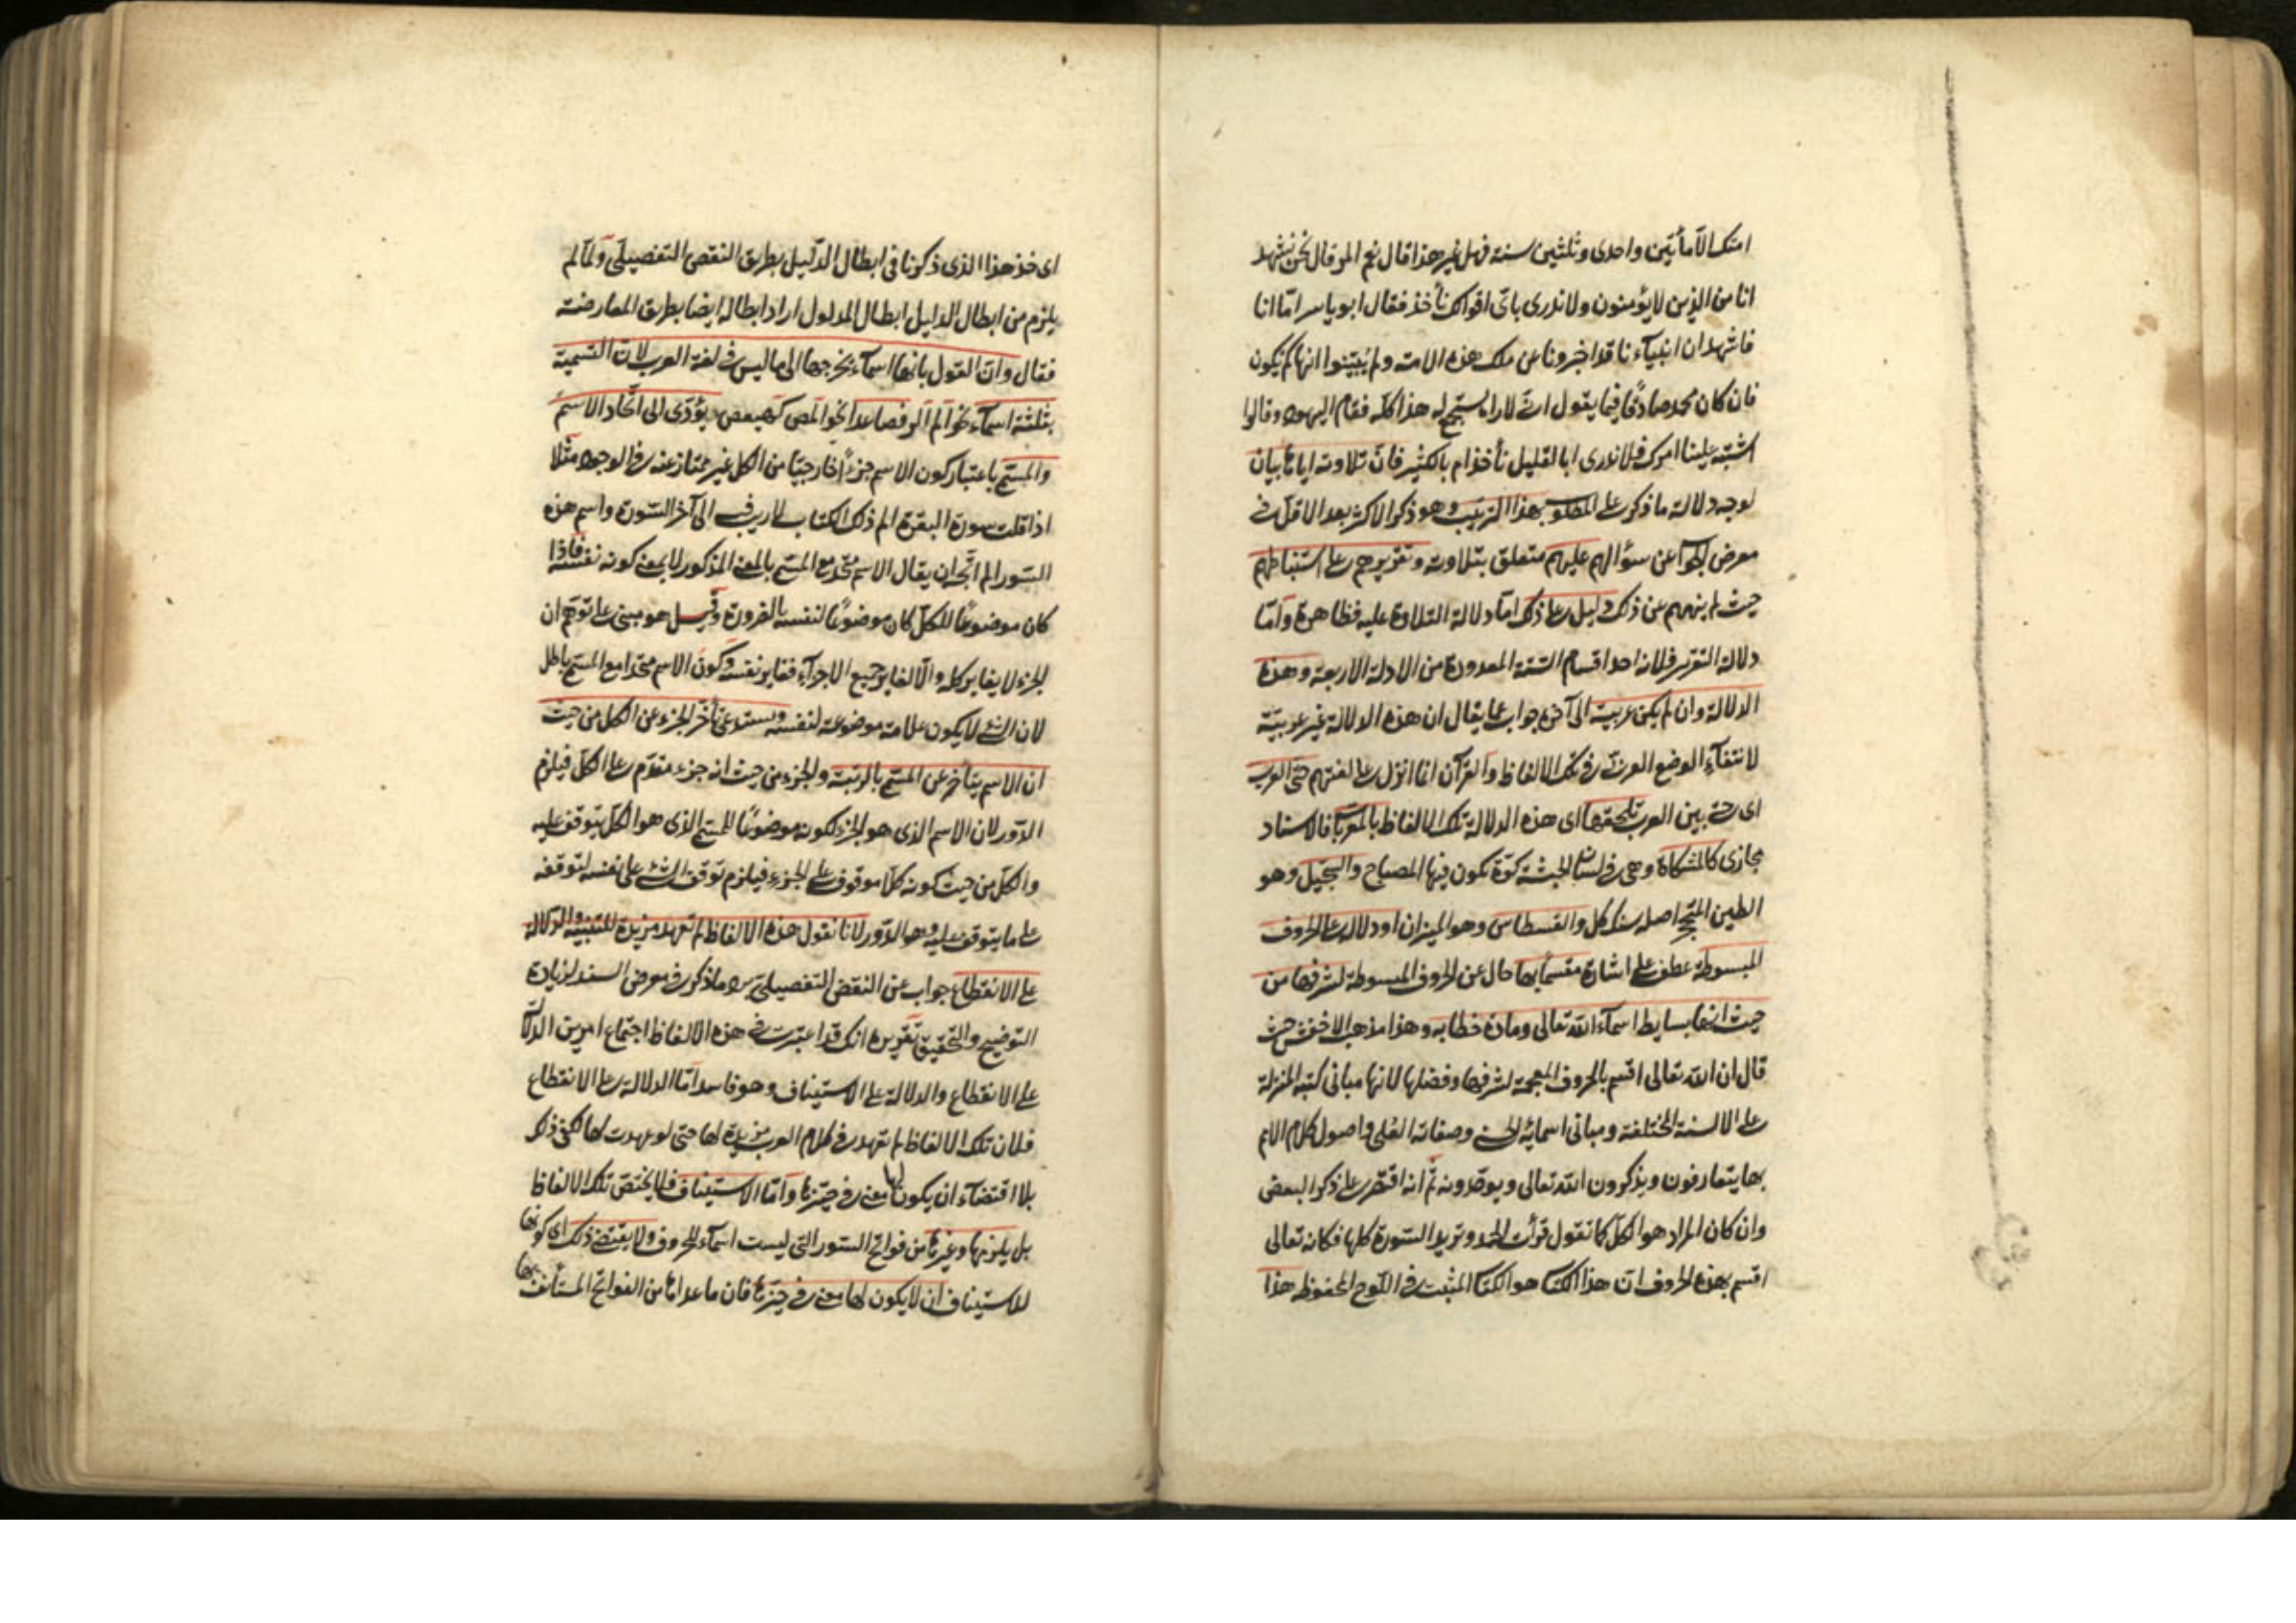 امتك الا مأتين واحدى وثلثين سنة فهل غير هذا قال نعم المر قال نحن نشهد
انا من الذين لا يؤمنون ولا ندرى باى اقوالك نأخذ فقال ابو ياسر اما انا
فاشهد ان انبياءنا قد اخبرونا عن ملك هذه الامة ولم يبينوا انها كم يكون
فان كان محمد صادقا فيما يقول انى لاراه يستجمع له هذا كله فقام اليهود وقالوا
اشتبه علينا امرك فلا ندرى ابالقليل نأخذ ام بالكثير فان تلاوته اياها بيان
لوجه دلالة ما ذكر على المطلوب بهذا الترتيب وهو ذكر الاكثر بعد الاقل فى
معرض الجواب عن سؤالهم عليهم متعلق بتلاوته وتقريرهم على استنباطهم
حيث لم ينههم عن ذلك دليل على ذلك اما دلالة التلاوة عليه فظاهرة واما
دلالة التقرير فلانه احد اقسام السنة المعدودة من الادلة الاربعة وهذه
الدلالة وان لم يكن عربية الى آخره جواب عما يقال ان هذه الدلالة غير عربية
لانتفاء الوضع العربى فى تلك الالفاظ والقرآن انما انزل على لغتهم حتى العرب
اى حتى بين العرب تلحقها اى هذه الدلالة تلك الالفاظ بالمعربات فالاسناد
مجازى كالمشكاة وهى فى لسان الحبشة كوة تكون فيها المصباح والسجيل وهو
الطين المتحجر اصله سنك كل والقسطاس وهو الميزان او دلالة على الحروف
المبسوطة عطف على اشارة مقسما بها حال عن الحروف المبسوطة لشرفها من
حيث انها بسايط اسماء الله تعالى ومادة خطابه وهذا مذهب الاخفش حيث
قال ان الله تعالى اقسم بالحروف المعجمة لشرفها وفضلها لانها مبانى كتبه المنزلة
على الالسنة المختلفة ومبانى اسمائه الحسنى وصفاته العلى واصول كلام الامم
بها يتعارفون ويذكرون الله تعالى ويوحدونه ثم انه اقتصر على ذكر البعض
وان كان المراد هو الكل كما تقول قرأت الحمد وتريد السورة كلها فكانه تعالى
اقسم بهذه الحروف ان هذا الكتاب هو الكتاب المثبت فى اللوح المحفوظ هذا
اى خذ هذا الذى ذكرنا فى ابطال الدليل بطريق النقض التفصيلى ولما لم
يلزم من ابطال الدليل ابطال المدلول اراد ابطاله ايضا بطريق المعارضة
فقال وان القول بانها اسماء يخرجها الى ما ليس فى لغة العرب لان التسمية
بثلثة اسماء نحو الم الر فصاعدا نحو المص كهيعص ويؤدى الى اتحاد الاسم
والمسمى باعتبار كون الاسم جزءا خارجيا من الكل غير ممتاز عنه فى الوجود مثلا
اذا قلت سورة البقرة الم ذلك الكتاب لا ريب فيه الى آخر السورة واسم هذه
السور الم اتجه ان يقال الاسم متحد مع المسمى بالمعنى المذكور لا بمعنى كونه نفسه فاذا
كان موضوعا للكل كان موضوعا لنفسه بالضرورة وقيل هو مبنى على توهم ان
الجزء لا يغاير كله والا لغاير جميع الاجزاء فغاير نفسه وكون الاسم متحدا مع المسمى باطل
لان الشئ لا يكون علامة موضوعة لنفسه ويستدعى تأخر الجزء عن الكل من حيث
ان الاسم يتأخر عن المسمى بالرتبة والجزء من حيث انه جزء مقدم على الكل فيلزم
الدور لان الاسم الذى هو الجزء لكونه موضوعا للمسمى الذى هو الكل يتوقف عليه
والكل من حيث كونه كلا موقوف على الجزء فيلزم توقف الشئ على نفسه لتوقفه
على ما يتوقف عليه وهو الدور لانا نقول هذه الالفاظ لم تعهد مزيدة للتنبيه والدلالة
على الانقطاع جواب عن النقض التفصيلى برد ما ذكر فى معرض السند لزيادة
التوضيح والتحقيق تقريره انك قد اعتبرت فى هذه الالفاظ اجتماع امرين الدلالة
على الانقطاع والدلالة على الاستيناف وهو فاسد اما الدلالة على الانقطاع
فلان تلك الالفاظ لم تعهد فى كلام العرب مزيدة لها حتى لو عهدت لها لكفى ذلك
بلا اقتضاء ان يكون لها معنى فى حيزها واما الاستيناف فلا يختص تلك الالفاظ
بل يلزمها وغيرها من فواتح السور التى ليست اسماء الحروف ولا يقتضى ذلك اى كونها
للاستيناف ان لا يكون لها معنى فى حيزها فان ما عداها من الفواتح المستأنف بها